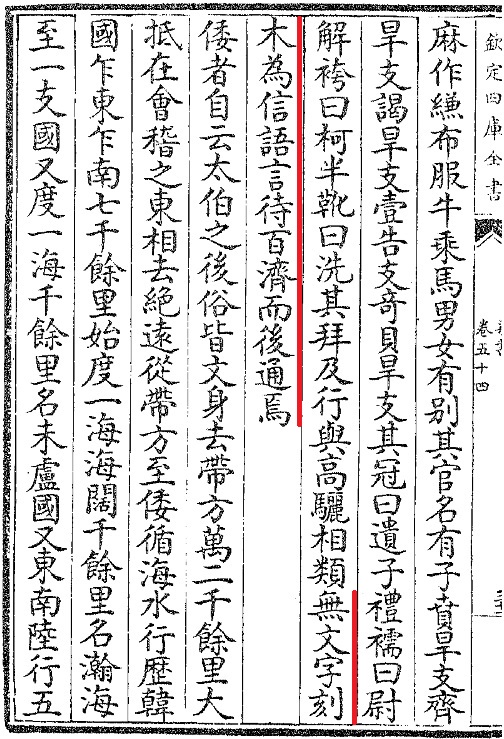 欽定四庫全書
卷五十四
麻作縑布服牛乗馬男女有别其官名有子賁旱支齊
旱支謁旱支壹告支竒貝旱支其冠曰遺子禮襦曰尉
解袴曰柯半靴曰洗其拜及行與高驪相類無文字刻
木為信語言待百濟而後通焉
倭者自云太伯之後俗皆文身去帶方萬二千餘里大
抵在會稽之東相去絶遠從帶方至倭循海水行歴韓
國乍東乍南七千餘里始度一海海闊千餘里名瀚海
至一支國又度一海千餘里名未盧國又東南陸行五